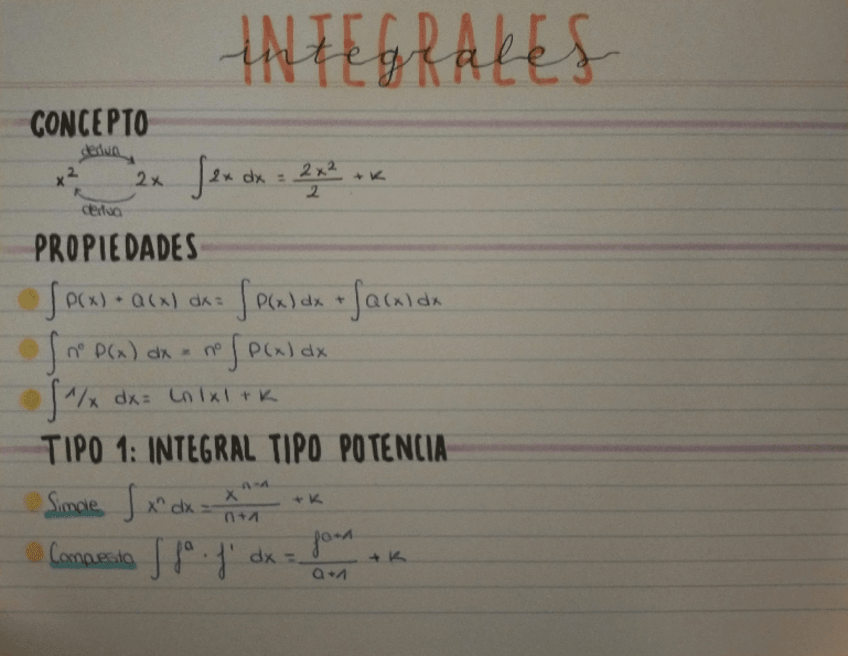 INTEGRALES
integrales
CONCEPTO
deriva
x² 2x ∫2x dx = 2x²/2 + K
deriva
PROPIEDADES
∫P(x) + Q(x) dx = ∫P(x) dx + ∫Q(x) dx
∫nº P(x) dx = nº ∫P(x) dx
∫1/x dx = Ln|x| + K
TIPO 1: INTEGRAL TIPO POTENCIA
Simple ∫xⁿ dx = xⁿ⁻¹/n+1 + K
Compuesta ∫fᵃ · f' dx = fᵃ⁺¹/a+1 + K